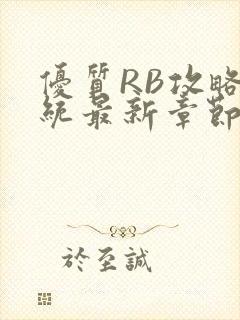 優質RB攻略
統最新章節
於至誠